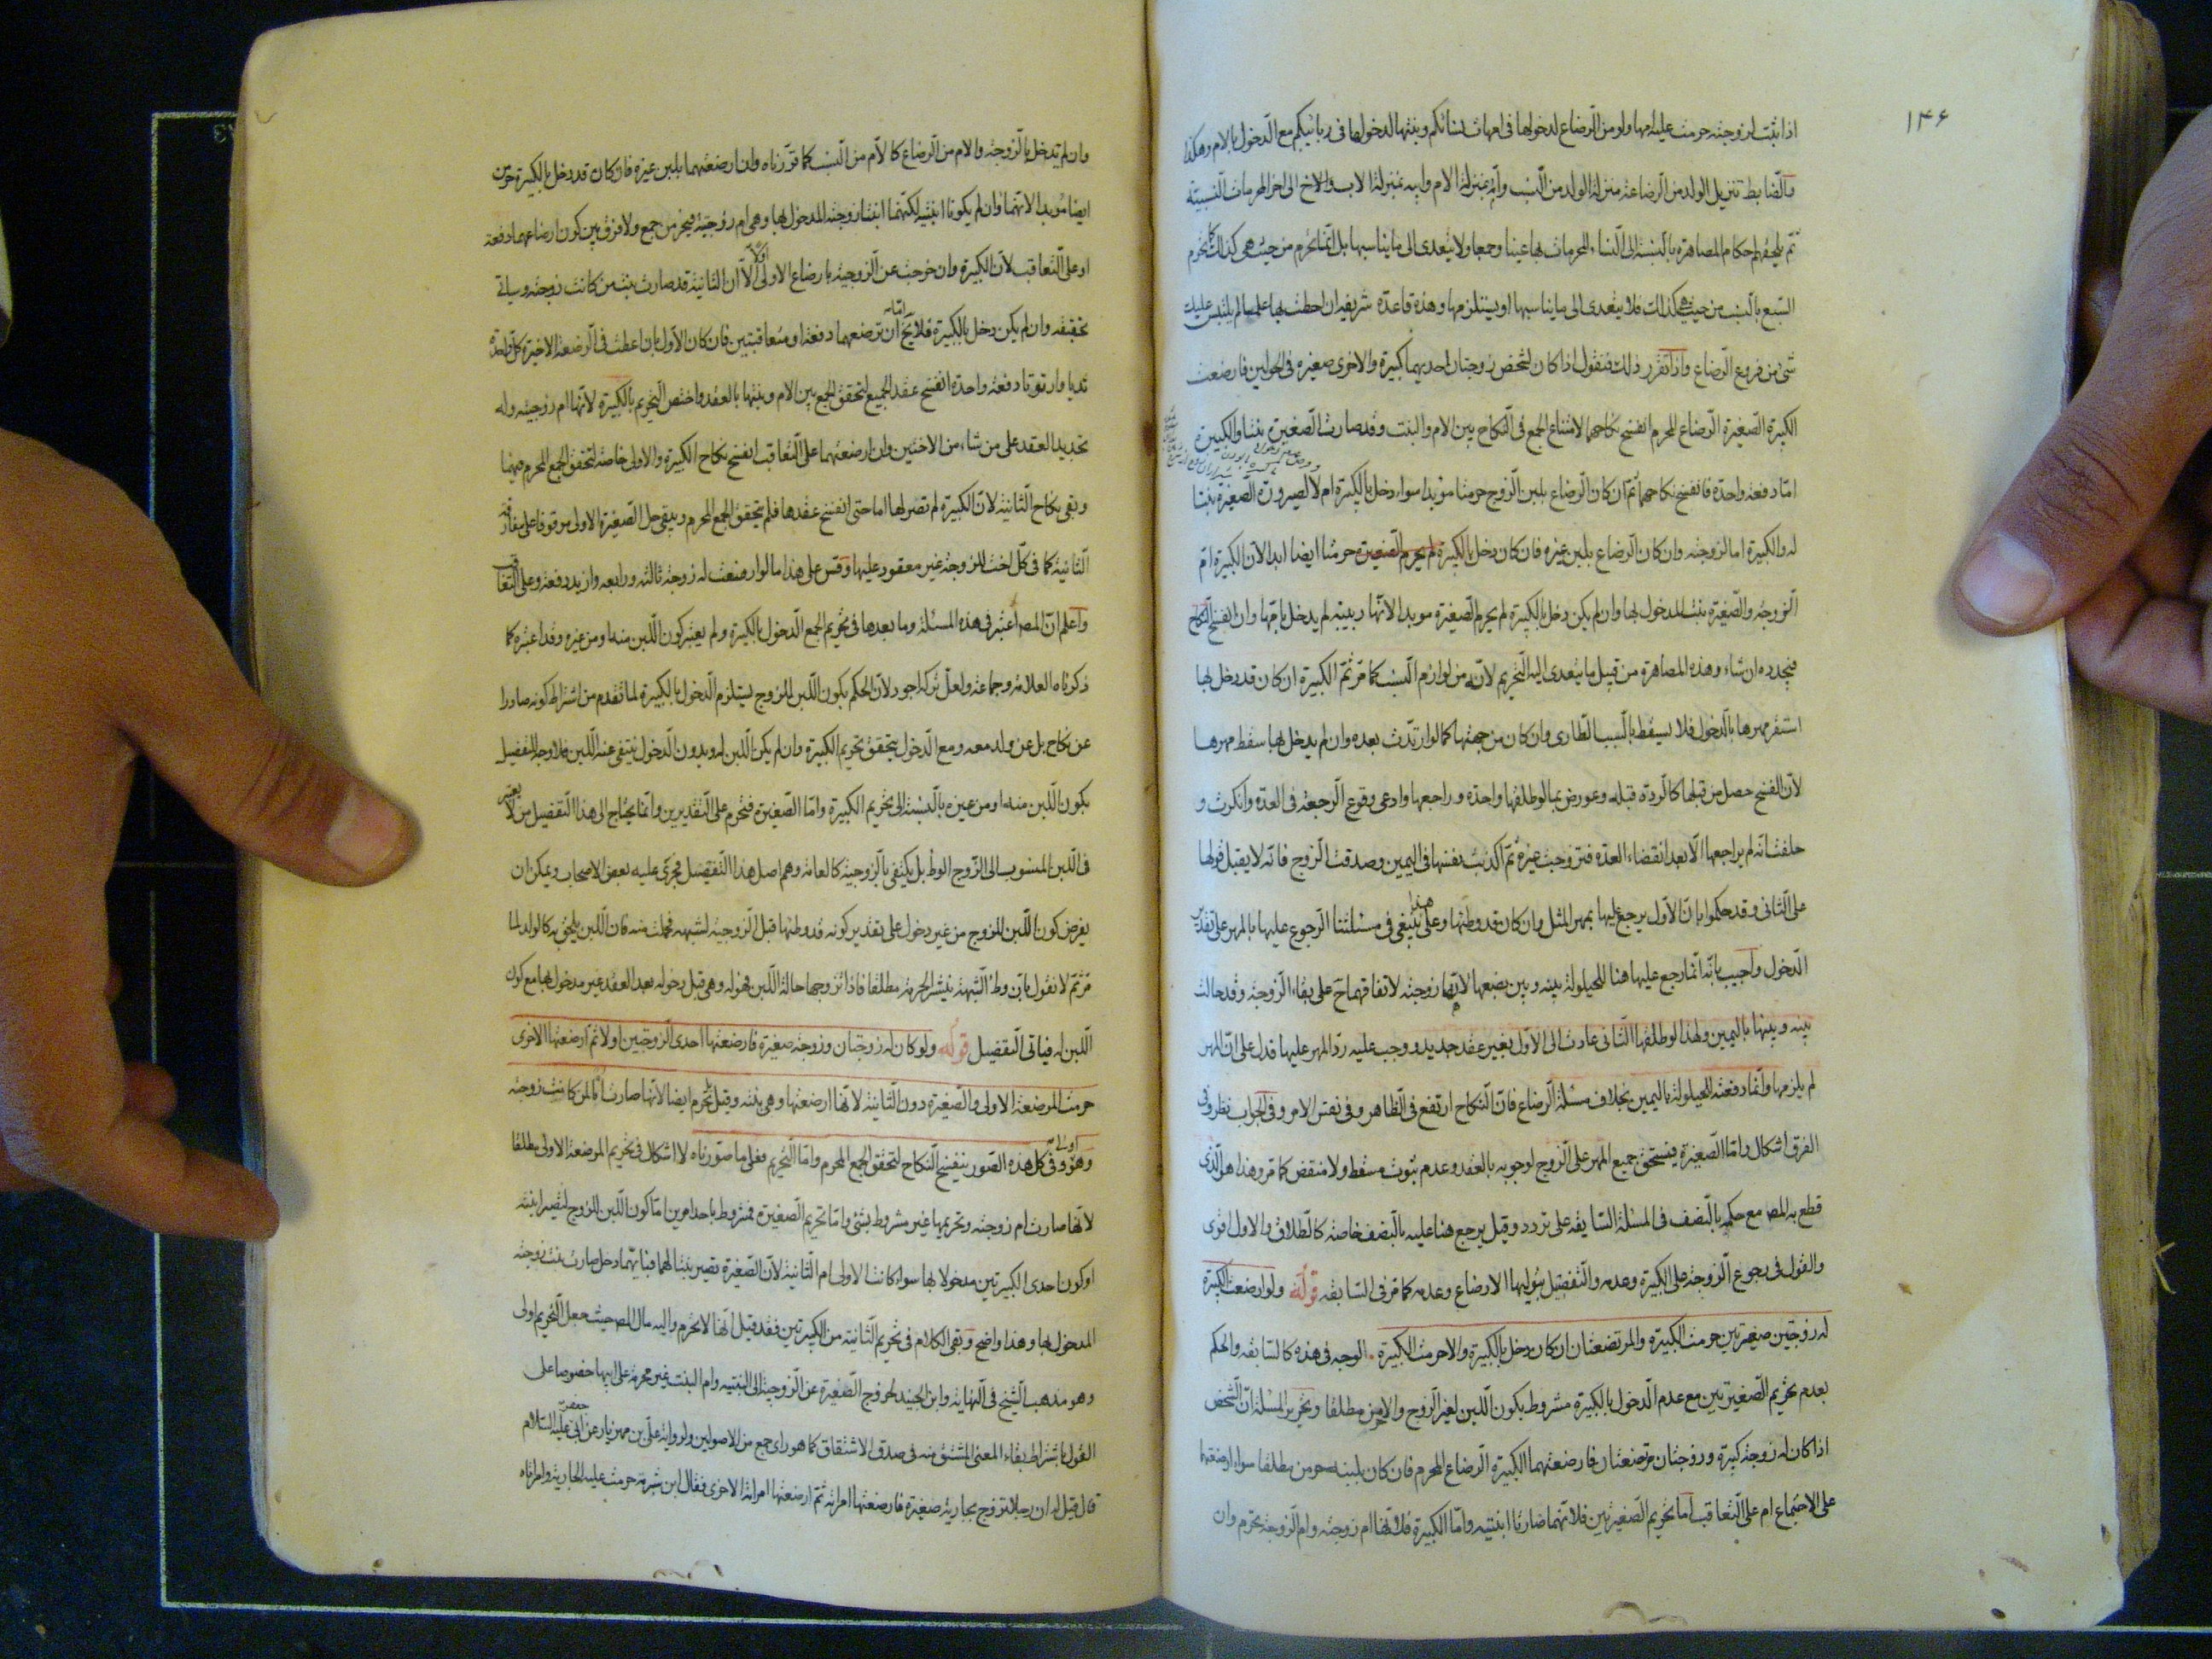 ۱۴۶
اذا ثبت له زوجته حرمت عليه امها ولو من الرضاع لدخولها فى امهات نسائكم وبنتها لدخولها فى ربائبكم مع الدخول بالام وهكذا
فالضابط تنزيل الولد من الرضاعة منزلة الولد من النسب وامه بمنزلة الام وابيه بمنزلة الاب والاخ الى اخر المحرمات النسبية
ثم يلحقهم احكام المصاهرة بالنسبة الى النساء المحرمات بها عينا وجمعا ولا يتعدى الى ما يناسبها بل انما يحرم من حيث هى كذلك كما يحرم
السبع بالنسب من حيث هى كذلك فلا يتعدى الى ما يناسبها او يستلزمها وهذه قاعدة شريفة ان احطت بها علما لم يلتبس عليك
شئ من فروع الرضاع واذا تقرر ذلك فنقول اذا كان لشخص زوجتان احديهما كبيرة والاخرى صغيرة فى الحولين فارضعت
الكبيرة الصغيرة الرضاع المحرم انفسخ نكاحهما لامتناع الجمع فى النكاح بين الام والبنت وقد صارت الصغيرة بنتا والكبيرة
اما دفعة واحدة فانفسخ نكاحهما ثم ان كان الرضاع بلبن الزوج حرمتا مؤبدا سواء دخل بالكبيرة ام لا لصيرورة الصغيرة بنتا
له والكبيرة اما لزوجته وان كان الرضاع بلبن غيره فان كان دخل بالكبيرة لم يحرم الصغيرة حرمتا ايضا ابدا لان الكبيرة ام
الزوجة والصغيرة بنت المدخول بها وان لم يكن دخل بالكبيرة لم يحرم الصغيرة مؤبدا لانها ربيبة لم يدخل بامها وان انفسخ النكاح
فيجدده ان شاء وهذه المصاهرة من قبيل ما يتعدى اليه التحريم لانه من لوازم النسب كما مر ثم الكبيرة ان كان قد دخل بها
استقر مهرها بالدخول فلا يسقط بالسبب الطارى وان كان من جهتها كما لو ارتدت بعده وان لم يدخل بها سقط مهرها
لان الفسخ حصل من قبلها كالردة قبله وعورض بما لو طلقها واحدة وراجعها وادعى وقوع الرجعة فى العدة وانكرت و
حلفت انه لم يراجعها الا بعد انقضاء العدة فتزوجت غيره ثم اكذبت نفسها فى اليمين وصدقت الزوج فانه لا يقبل قولها
على الثانى وقد حكموا بان الاول يرجع عليها بمهر المثل وان كان قد وطئها وعلى هذا ينبغى فى مسئلتنا الرجوع عليها بالمهر على تقدير
الدخول واجيب بانه انما رجع عليها هنا للحيلولة بينه وبين بضعها لانها زوجته لاتفاقهما ح على بقاء الزوجية وقد حالت
بينه وبينها باليمين ولهذا لو طلقها الثانى عادت الى الاول بغير عقد جديد ووجب عليه رد المهر عليها فدل على ان المهر
لم يلزمها وانما دفعته للحيلولة باليمين بخلاف مسئلة الرضاع فان النكاح ارتفع فى الظاهر وفى نفس الامر وفى الجواب نظر وفى
الفرق اشكال واما الصغيرة فيستحق جميع المهر على الزوج لوجوبه بالعقد وعدم ثبوت مسقط ولا منقص كما مر وهذا هو الذى
قطع به المص مع حكمه بالنصف فى المسئلة السابقة على تردد وقيل يرجع هنا عليه بالنصف خاصة كالطلاق والاول اقوى
والقول فى رجوع الزوجة على الكبيرة وعدمه والتفصيل بتوليها الارضاع وعدمه كما مر فى السابقه قوله ولو ارضعت الكبيرة
له زوجتين صغيرتين حرمت الكبيرة والمرتضعتان ان كان دخل بالكبيرة والا حرمت الكبيرة الوجه فى هذه كالسابقه والحكم
بعدم تحريم الصغيرتين مع عدم الدخول بالكبيرة مشروط بكون اللبن لغير الزوج والا حرمن مطلقا وتحرير المسئلة ان الشخص
اذا كان له زوجة كبيرة وزوجتان مرتضعتان فارضعتهما الكبيرة الرضاع المحرم فان كان بلبنه حرمن مطلقا سواء ارضعتهما
على الاجتماع ام على التعاقب اما تحريم الصغيرتين فلانهما صارتا ابنتيه واما الكبيرة فلانها ام زوجته وام الزوجة يحرم وان
وان لم تدخل بالزوجة والام من الرضاع كالام من النسب كما قررناه وان ارضعتهما بلبن غيره فان كان قد دخل بالكبيرة حرمن
ايضا مؤبدا لانهما وان لم يكونا ابنتيه لكنهما ابنتا زوجته المدخول بها وهى ام زوجتيه فيحرمن جمع ولا فرق بين كون ارضاعهما دفعة
او على التعاقب لان الكبيرة وان خرجت عن الزوجية بارضاع الاولى اولا الا ان الثانية قد صارت بنت من كانت زوجته وسياتى
تحقيقه وان لم يكن دخل بالكبيرة فلا يخ اما ان ترضعهما دفعة او متعاقبتين فان كان الاول بان اعطت فى الرضعة الاخيرة كل واحدة
ثديا وارتوتا دفعة واحدة انفسخ عقد الجميع لتحقق الجمع بين الام وبنتها بالعقد واختص التحريم بالكبيرة لانها ام زوجتيه وله
تجديد العقد على من شاء من الاختين وان ارضعتهما على التعاقب انفسخ نكاح الكبيرة والاولى خاصة لتحقق الجمع المحرم فيهما
وبقى نكاح الثانية لان الكبيرة لم تصر لها اما حتى انفسخ عقدها فلم يتحقق الجمع المحرم ويبقى حل الصغيرة الاولى موقوفا على مفارقة
الثانية كما فى كل اخت للزوجة غير معقود عليها وقس على هذا ما لو ارضعت له زوجة ثالثه ورابعه وازيد دفعة وعلى التعاقب
واعلم ان المص اعتبر فى هذه المسئلة وما بعدها فى تحريم الجمع الدخول بالكبيرة ولم يعتبر كون اللبن منه او من غيره وقد اعتبره كما
ذكرناه العلامة وجماعة ولعل تركه اجود لان الحكم بكون اللبن للزوج يستلزم الدخول بالكبيرة لما تقدم من اشتراط كونه صادرا
عن نكاح بل عن ولد معه ومع الدخول يتحقق تحريم الكبيرة وان لم يكن اللبن له وبدون الدخول ينتفى عنه اللبن فلا وجه للتفصيل
بكون اللبن منه او من غيره بالنسبة الى تحريم الكبيرة واما الصغيرة فتحرم على التقديرين وانما يحتاج الى هذا التفصيل من لا يعتبر
فى اللبن المنسوب الى الزوج الوطئ بل يكتفى بالزوجية كالعامة وهم اصل هذا التفصيل فجرى عليه بعض الاصحاب ويمكن ان
يفرض كون اللبن للزوج من غير دخول على تقدير كونه قد وطئها قبل الزوجية لشبهه فحملت منه فان اللبن يلحق به كالولد لما
مر ثم لا نقول بان وطئ الشبهة ينشر الحرمة مطلقا فاذا تزوجها حالة اللبن فهو له وهى قبل دخوله بعد العقد غير مدخول بها مع كون
اللبن له فياتى التفصيل قوله ولو كان له زوجتان وزوجة صغيرة فارضعتها احدى الزوجتين اولا ثم ارضعتها الاخرى
حرمت المرضعة الاولى والصغيرة دون الثانية لانها ارضعتها وهى بنته وقيل تحرم ايضا لانها صارت اما لمن كانت زوجته
وهو اولى وفى كل هذه الصور ينفسخ النكاح لتحقق الجمع المحرم واما التحريم فعلى ما صورناه لا اشكال فى تحريم المرضعة الاولى مطلقا
لانها صارت ام زوجته وتحريمها غير مشروط بشئ واما تحريم الصغيرة فمشروط باحد امرين اما كون اللبن للزوج لتصير ابنته
او كون احدى الكبيرتين مدخولا بها سواء كانت الاولى ام الثانية لان الصغيرة تصير بنتا لهما فبايتهما دخل صارت بنت زوجته
المدخول بها وهذا واضح وبقى الكلام فى تحريم الثانية من الكبيرتين فقد قيل انها لا تحرم واليه مال المص حيث جعل التحريم اولى
وهو مذهب الشيخ فى النهاية وابن الجنيد لخروج الصغيرة عن الزوجية الى البنتيه وام البنت غير محرمة على ابيها خصوصا على
القول باشتراط بقاء المعنى المشتق منه فى صدق الاشتقاق كما هو راى جمع من الاصوليين ولرواية على بن مهزيار عن ابى جعفر عليه السلام
قال قيل له ان رجلا تزوج بجارية صغيرة فارضعتها امراته ثم ارضعتها امراته الاخرى فقال ابن شبرمة حرمت عليه الجارية وامراتاه